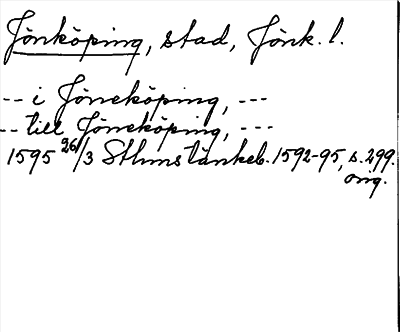 Jönköping, stad, Jönk. l.
-- i Jöneköping, ---
-- till Jöneköping, ---
1595 26/3 Sthms tänkeb. 1592-95, s. 299.
orig.